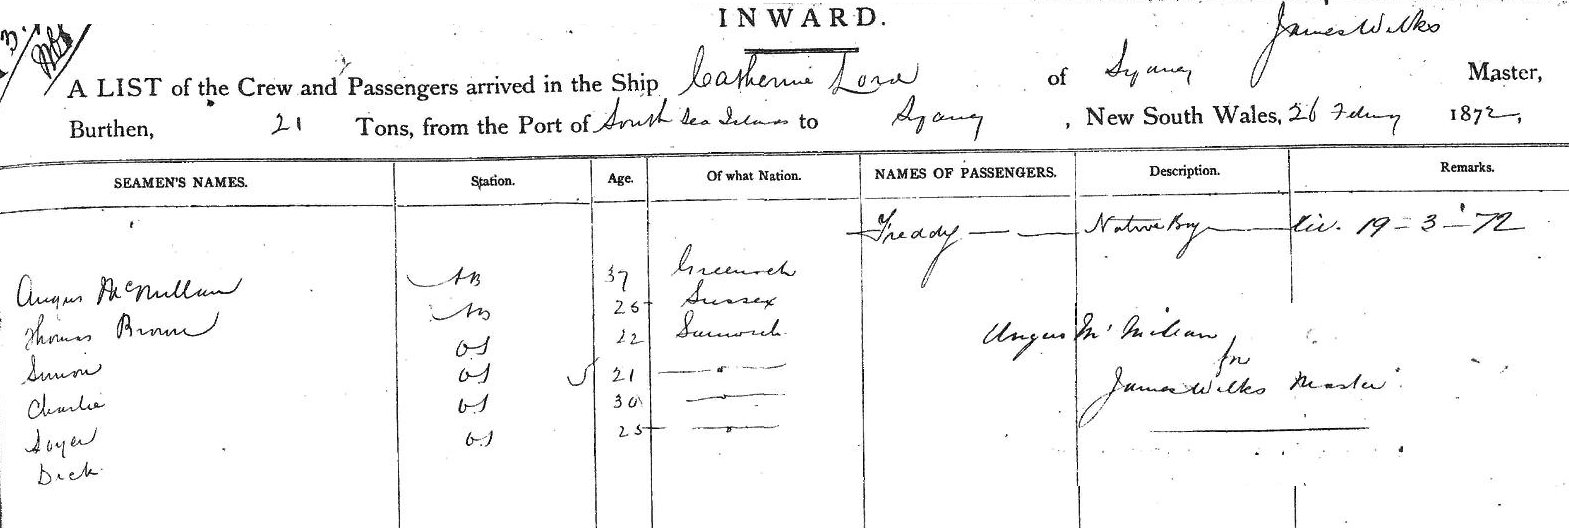 INWARD.
James Wilks
A LIST of the Crew and Passengers arrived in the Ship Catherine Lord of Sydney Master,
Burthen, 21 Tons, from the Port of South Sea Islands to Sydney, New South Wales, 26 Febuy 1872,
SEAMEN'S NAMES. Station. Age. Of what Nation. NAMES OF PASSENGERS. Description. Remarks.
Freddy Native Boy 19-3-72
Angus McMillan AB 37 Greenock
Thomas Brown AB 25 Sussex
Simon OS 22 Sanwich
Charlie OS 21 "
OS 30 "
Dick OS 25 "
Angus McMillan
for
James Wilks Master